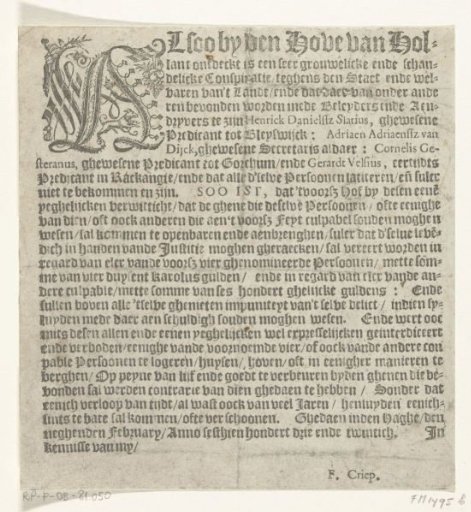 ALsoo by den Hove van Hol-
lant ontdeckt is een seer grouwelicke ende schan-
delicke Conspiratie teghens den Staet ende wel-
varen van 't Landt / ende dat daer van onder ande
ren bevonden worden mede Beleyders ende Aen-
dryvers te zijn Henrick Danielsz Slatius, ghewesene
Predicant tot Bleyswijck: Adriaen Adriaensz van
Dijck, ghewesene Secretaris aldaer: Cornelis Ge-
steranus, ghewesene Predicant tot Gorchum / ende Gerardt Velsius, eertijdts
Predicant in ende dat alle d'selve Persoonen latiteren / en suler
niet te bekommen en zijn. SOO IST, dat 'tvoorsz Hof by desen eenē
yeghelijcken verwitticht / dat de ghene die deselve Persoonen / ofte eenighe
van dien / oft oock anderen die aen't voorsz Feyt culpabel souden moghen
wesen / sal kommen te openbaren ende aenbrenghen / suler dat d'selve levē-
dich in handen vande Justitie moghen gheraecken / sal vereert worden in
regard van elcx vande voorsz vier ghenomineerde Persoonen / mette som-
me van vier duysent Karolus gulden / ende in regard van elcx vande an-
dere culpable / mette somme van ses hondert ghelijcke guldens: Ende
sullen boven alle 'tselve ghenieten impuniteyt van't selve delict / indien sy-
luyden mede daer aen schuldigh souden moghen wesen. Ende wert ooc
mits desen allen ende eenen yeghelijcken wel expresselijcken geinterdiceert
ende verboden / eenighe vande voornoemde vier / of oock vande andere coul
pable Persoonen te logeren / huysen / hoven / oft in eenigher manieren te
berghen / Op peyne van lijf ende goedt te verbeuren by den ghenen die be-
vonden sal werden contrarie van dien ghedaen te hebben / Sonder dat
eenich verloop van tijdt / al wast oock van veel Jaren / henluyden eenich-
sints te bate sal kommen / ofte verschoonen. Ghedaen inden Haghe / den
neghenden February / Anno sesthien hondert drie ende twintich. In
kennisse van my /
F. Criep.
RP-P-OB-81.050
FM 1495 b